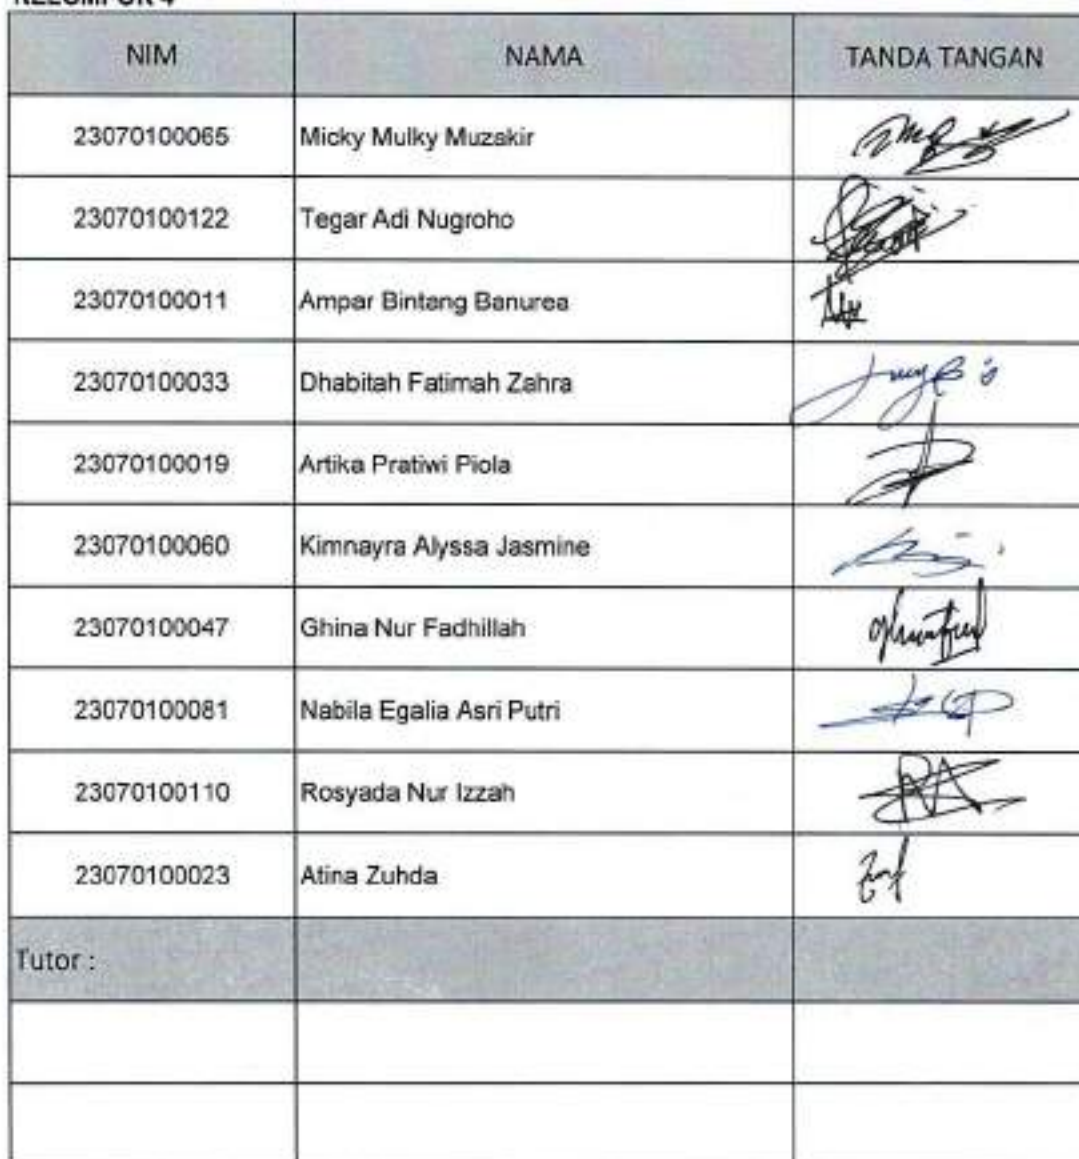 NIM NAMA TANDA TANGAN
23070100065 Micky Mulky Muzakir
23070100122 Tegar Adi Nugroho
23070100011 Ampar Bintang Banurea
23070100033 Dhabitah Fatimah Zahra
23070100019 Artika Pratiwi Piola
23070100060 Kimnayra Alyssa Jasmine
23070100047 Ghina Nur Fadhillah
23070100081 Nabila Egalia Asri Putri
23070100110 Rosyada Nur Izzah
23070100023 Atina Zuhda
Tutor :